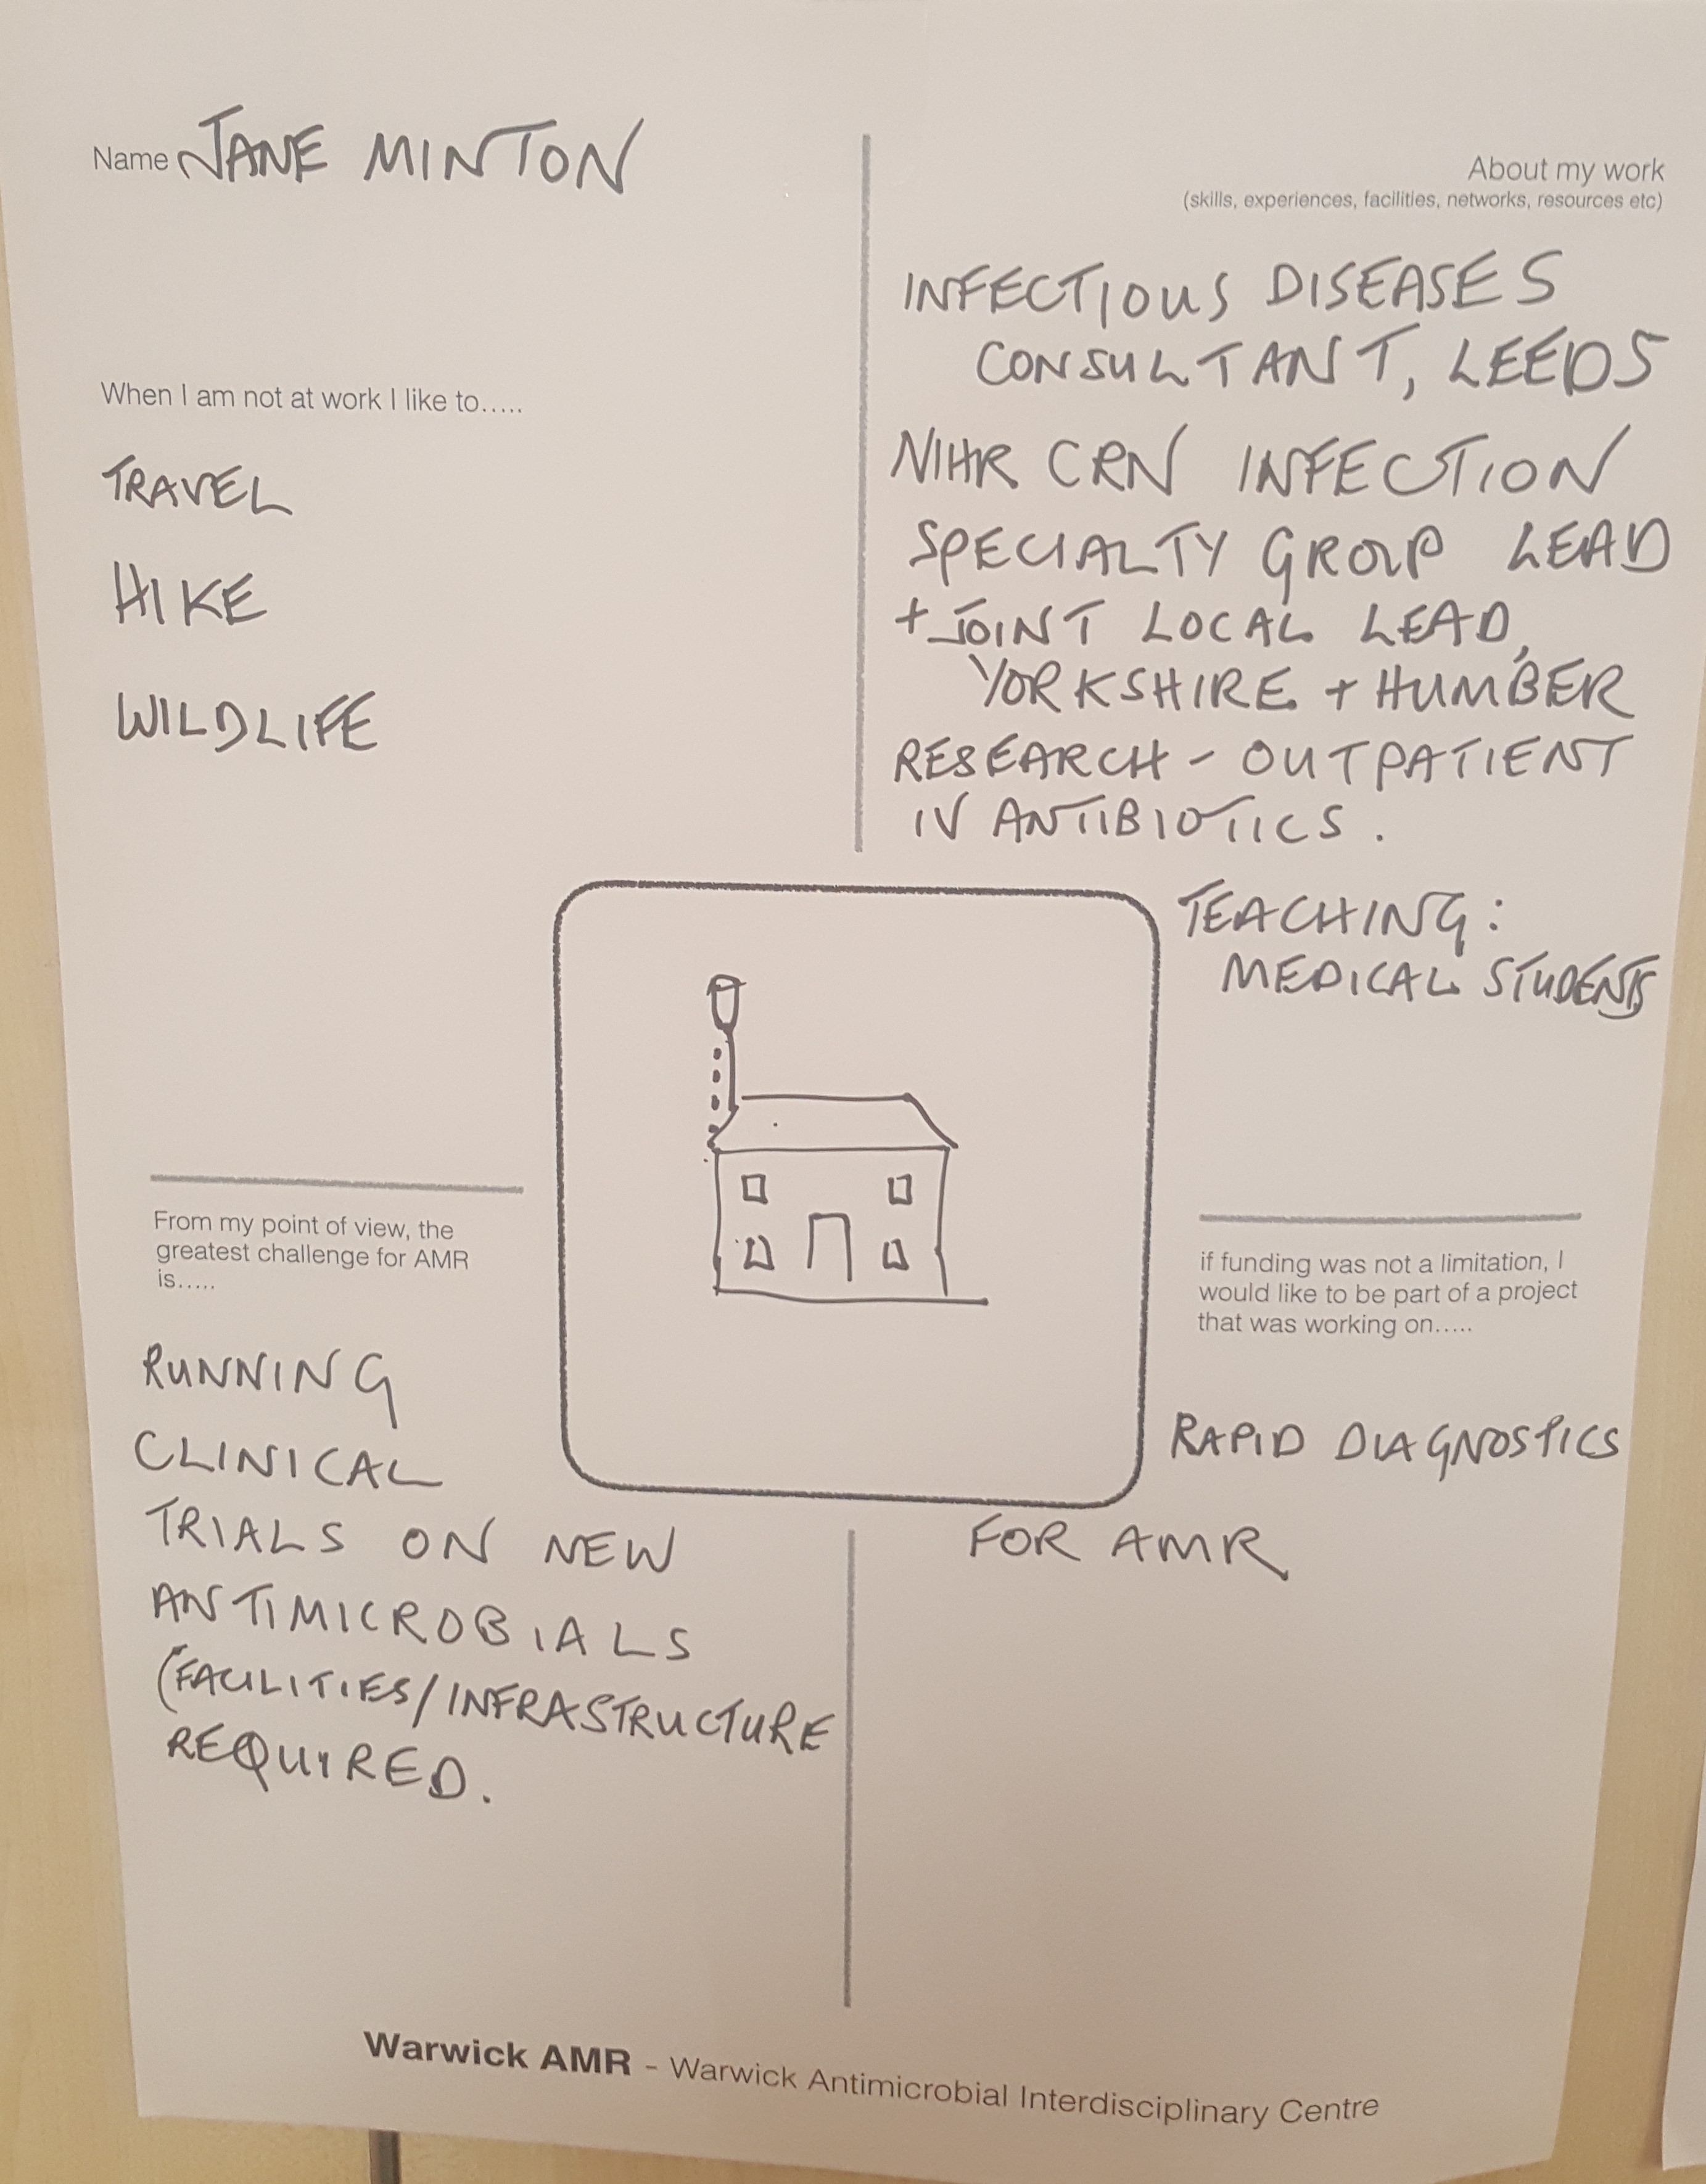 Name JANE MINTON
When I am not at work I like to.....
TRAVEL
HIKE
WILDLIFE
About my work
(skills, experiences, facilities, networks, resources etc)
INFECTIOUS DISEASES
CONSULTANT, LEEDS
NIHR CRN INFECTION
SPECIALTY GROUP LEAD
+ JOINT LOCAL LEAD,
YORKSHIRE + HUMBER
RESEARCH - OUTPATIENT
IV ANTIBIOTICS.
TEACHING:
MEDICAL STUDENTS
From my point of view, the
greatest challenge for AMR
is.....
RUNNING
CLINICAL
TRIALS ON NEW
ANTIMICROBIALS
(FACILITIES/INFRASTRUCTURE
REQUIRED.
if funding was not a limitation, I
would like to be part of a project
that was working on.....
RAPID DIAGNOSTICS
FOR AMR
Warwick AMR - Warwick Antimicrobial Interdisciplinary Centre